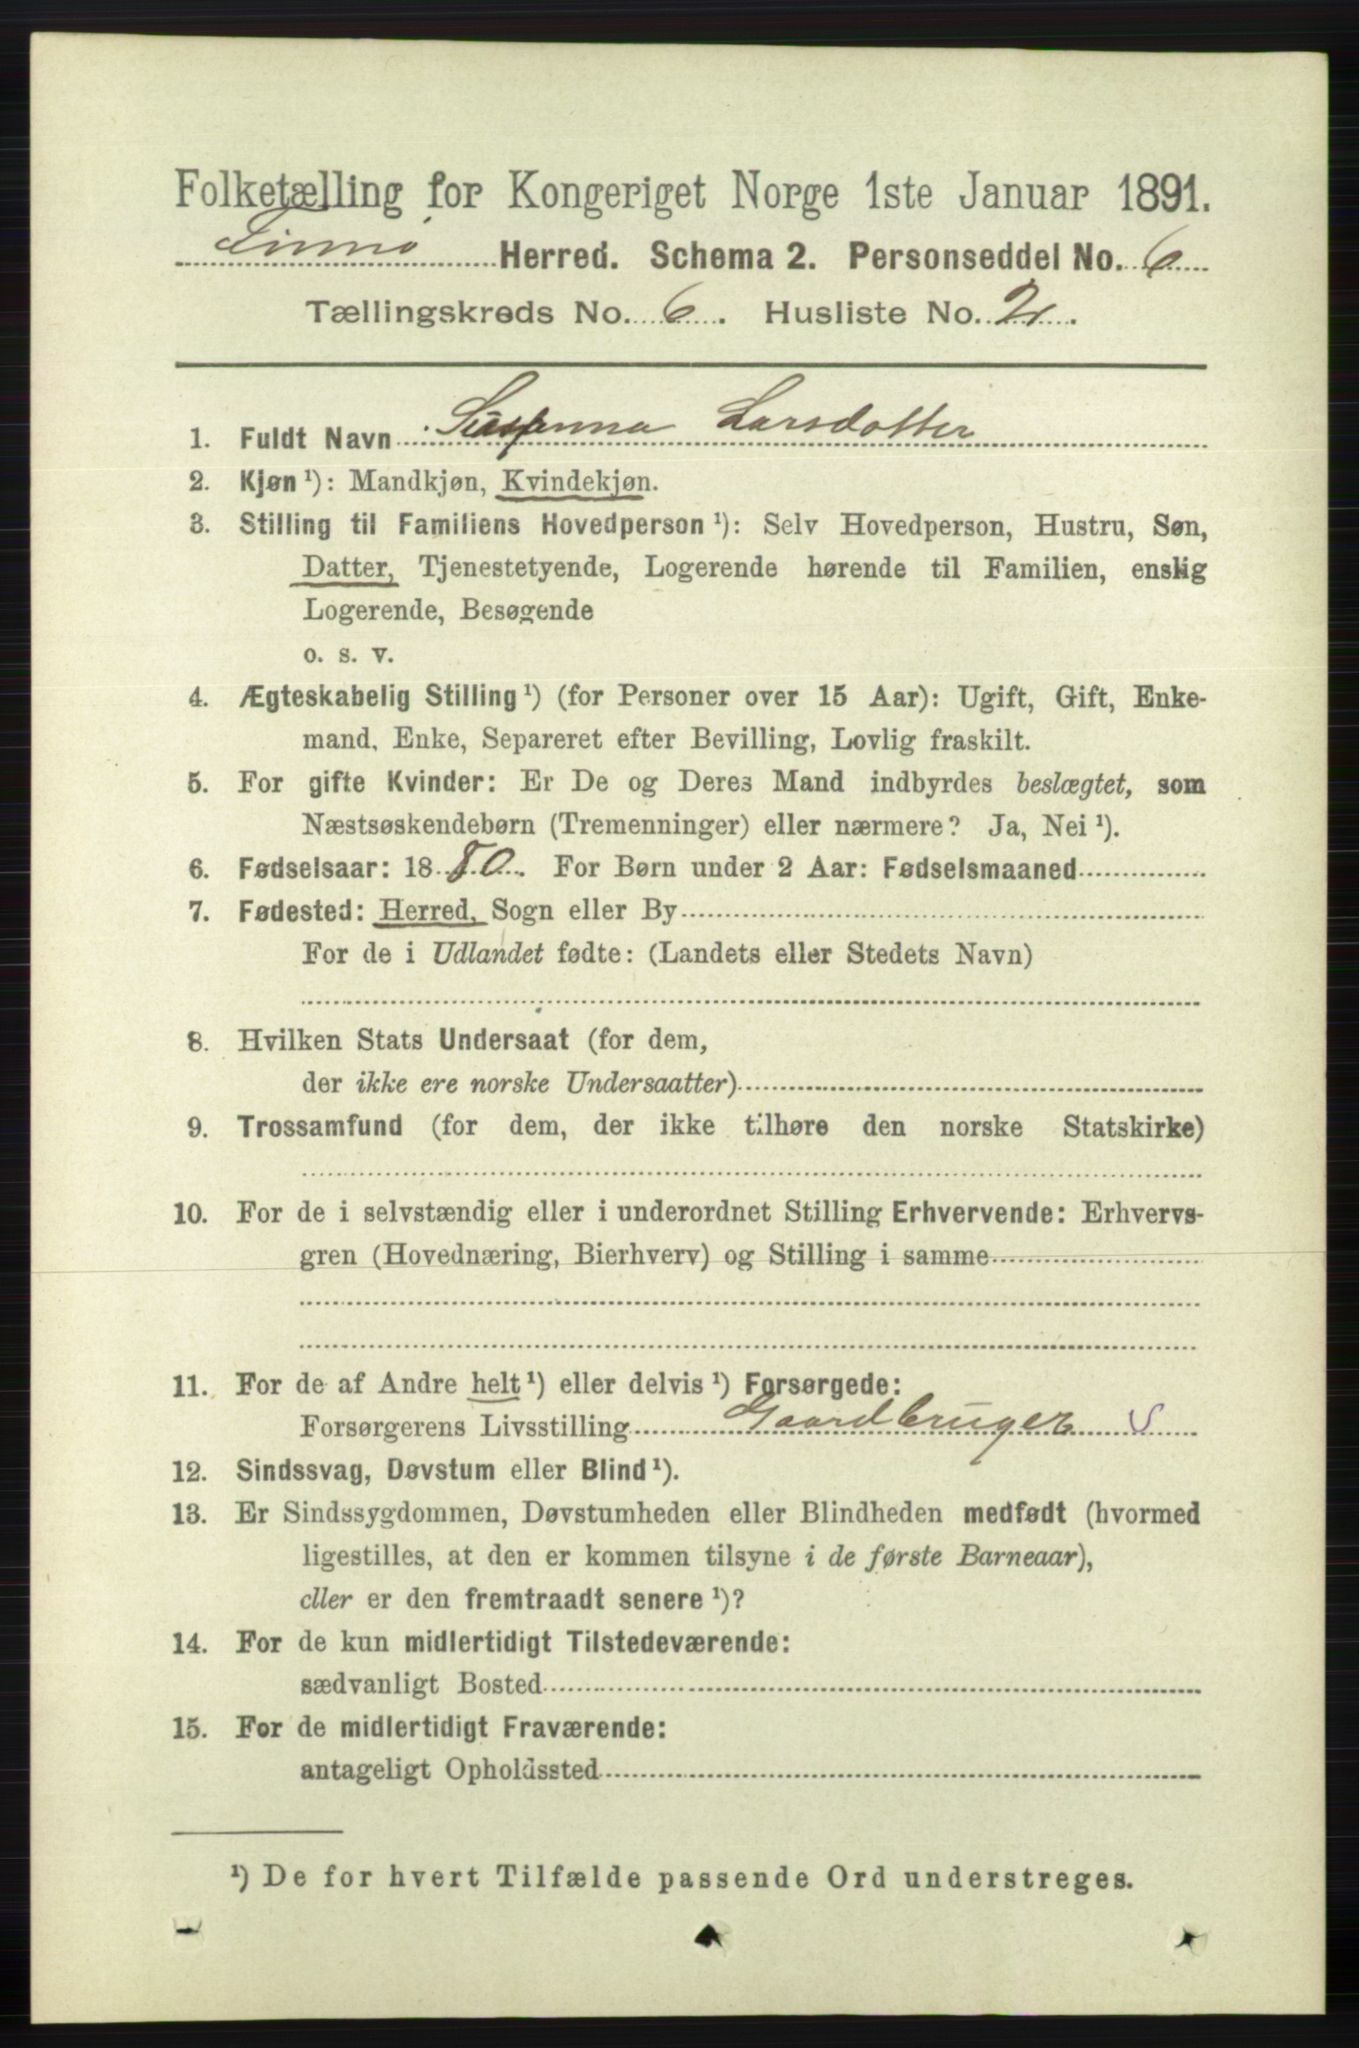 Folketælling for Kongeriget Norge 1ste Januar 1891.
Finnø Herred. Schema 2. Personseddel No. 6
Tællingskreds No. 6. Husliste No. 2.
1. Fuldt Navn Larsdotter
2. Kjøn ¹): Mandkjøn, Kvindekjøn.
3. Stilling til Familiens Hovedperson ¹): Selv Hovedperson, Hustru, Søn,
Datter, Tjenestetyende, Logerende hørende til Familien, enslig
Logerende, Besøgende
o. s. v.
4. Ægteskabelig Stilling ¹) (for Personer over 15 Aar): Ugift, Gift, Enke-
mand, Enke, Separeret efter Bevilling, Lovlig fraskilt.
5. For gifte Kvinder: Er De og Deres Mand indbyrdes beslægtet, som
Næstsøskendebørn (Tremenninger) eller nærmere? Ja, Nei ¹).
6. Fødselsaar: 1880. For Børn under 2 Aar: Fødselsmaaned
7. Fødested: Herred, Sogn eller By
For de i Udlandet fødte: (Landets eller Stedets Navn)
8. Hvilken Stats Undersaat (for dem,
der ikke ere norske Undersaatter)
9. Trossamfund (for dem, der ikke tilhøre den norske Statskirke)
10. For de i selvstændig eller i underordnet Stilling Erhvervende: Erhvervs-
gren (Hovednæring, Bierhverv) og Stilling i samme
11. For de af Andre helt ¹) eller delvis ¹) Forsørgede:
Forsørgerens Livsstilling Gaardbruger S
12. Sindssvag, Døvstum eller Blind ¹).
13. Er Sindssygdommen, Døvstumheden eller Blindheden medfødt (hvormed
ligestilles, at den er kommen tilsyne i de første Barneaar),
eller er den fremtraadt senere ¹)?
14. For de kun midlertidigt Tilstedeværende:
sædvanligt Bosted
15. For de midlertidigt Fraværende:
antageligt Opholdssted
¹) De for hvert Tilfælde passende Ord understreges.